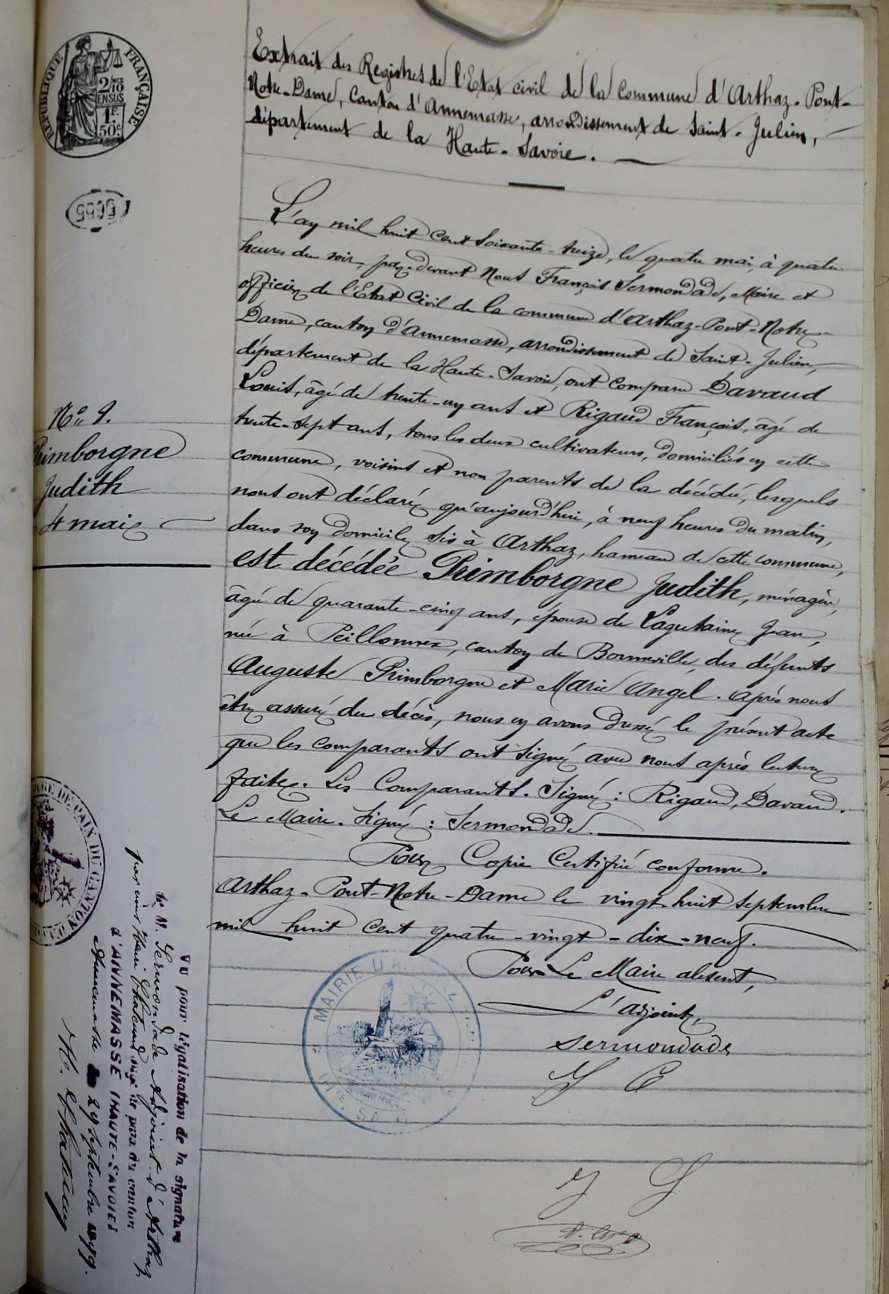 RÉPUBLIQUE FRANÇAISE
2/10
EN SUS
1F.
50c
Extrait des Registres de l'Etat civil de la Commune d'Arthaz-Pont-
Notre-Dame, Canton d'Annemasse, arrondissement de Saint-Julien,
département de la Haute-Savoie.
L'an mil huit cent soixante-treize, le quatre mai, à quatre
heures du soir, par devant Nous François Sermondade, Maire et
officier de l'Etat Civil de la commune d'Arthaz-Pont-Notre-
Dame, canton d'Annemasse, arrondissement de Saint-Julien,
département de la Haute-Savoie, ont comparu Davaud
Louis, âgé de trente-un ans et Rigaud François, âgé de
trente-sept ans, tous les deux cultivateurs, domiciliés en cette
commune, voisins et non parents de la décédée, lesquels
nous ont déclaré qu'aujourd'hui, à neuf heures du matin,
dans son domicile, sis à Arthaz, hameau de cette commune,
est décédée Primborgne Judith, ménagère,
âgée de quarante-cinq ans, épouse de Jean,
née à Peillonnex, canton de Bonneville, des défunts
Auguste Primborgne et Marie Angel. Après nous
être assuré du décès, nous en avons dressé le présent acte
que les comparants ont signé avec nous après lecture
faite. Les Comparants. Signé: Rigaud, Davaud.
Le Maire. Signé: Sermondade.
Pour Copie Certifiée conforme.
Arthaz-Pont-Notre-Dame le vingt huit septembre
mil huit cent quatre-vingt-dix-neuf.
Pour Le Maire absent,
L'adjoint,
Sermondade
No 9.
Primborgne
Judith
4 mai
DE PAIX DU CANTON
MAIRIE D'A
Vu pour légalisation de la signature
de M. Sermondade Adjoint d'Arthaz
par nous juge de paix du canton
d'ANNEMASSE (HAUTE-SAVOIE)
Annemasse 29 septembre 1899.